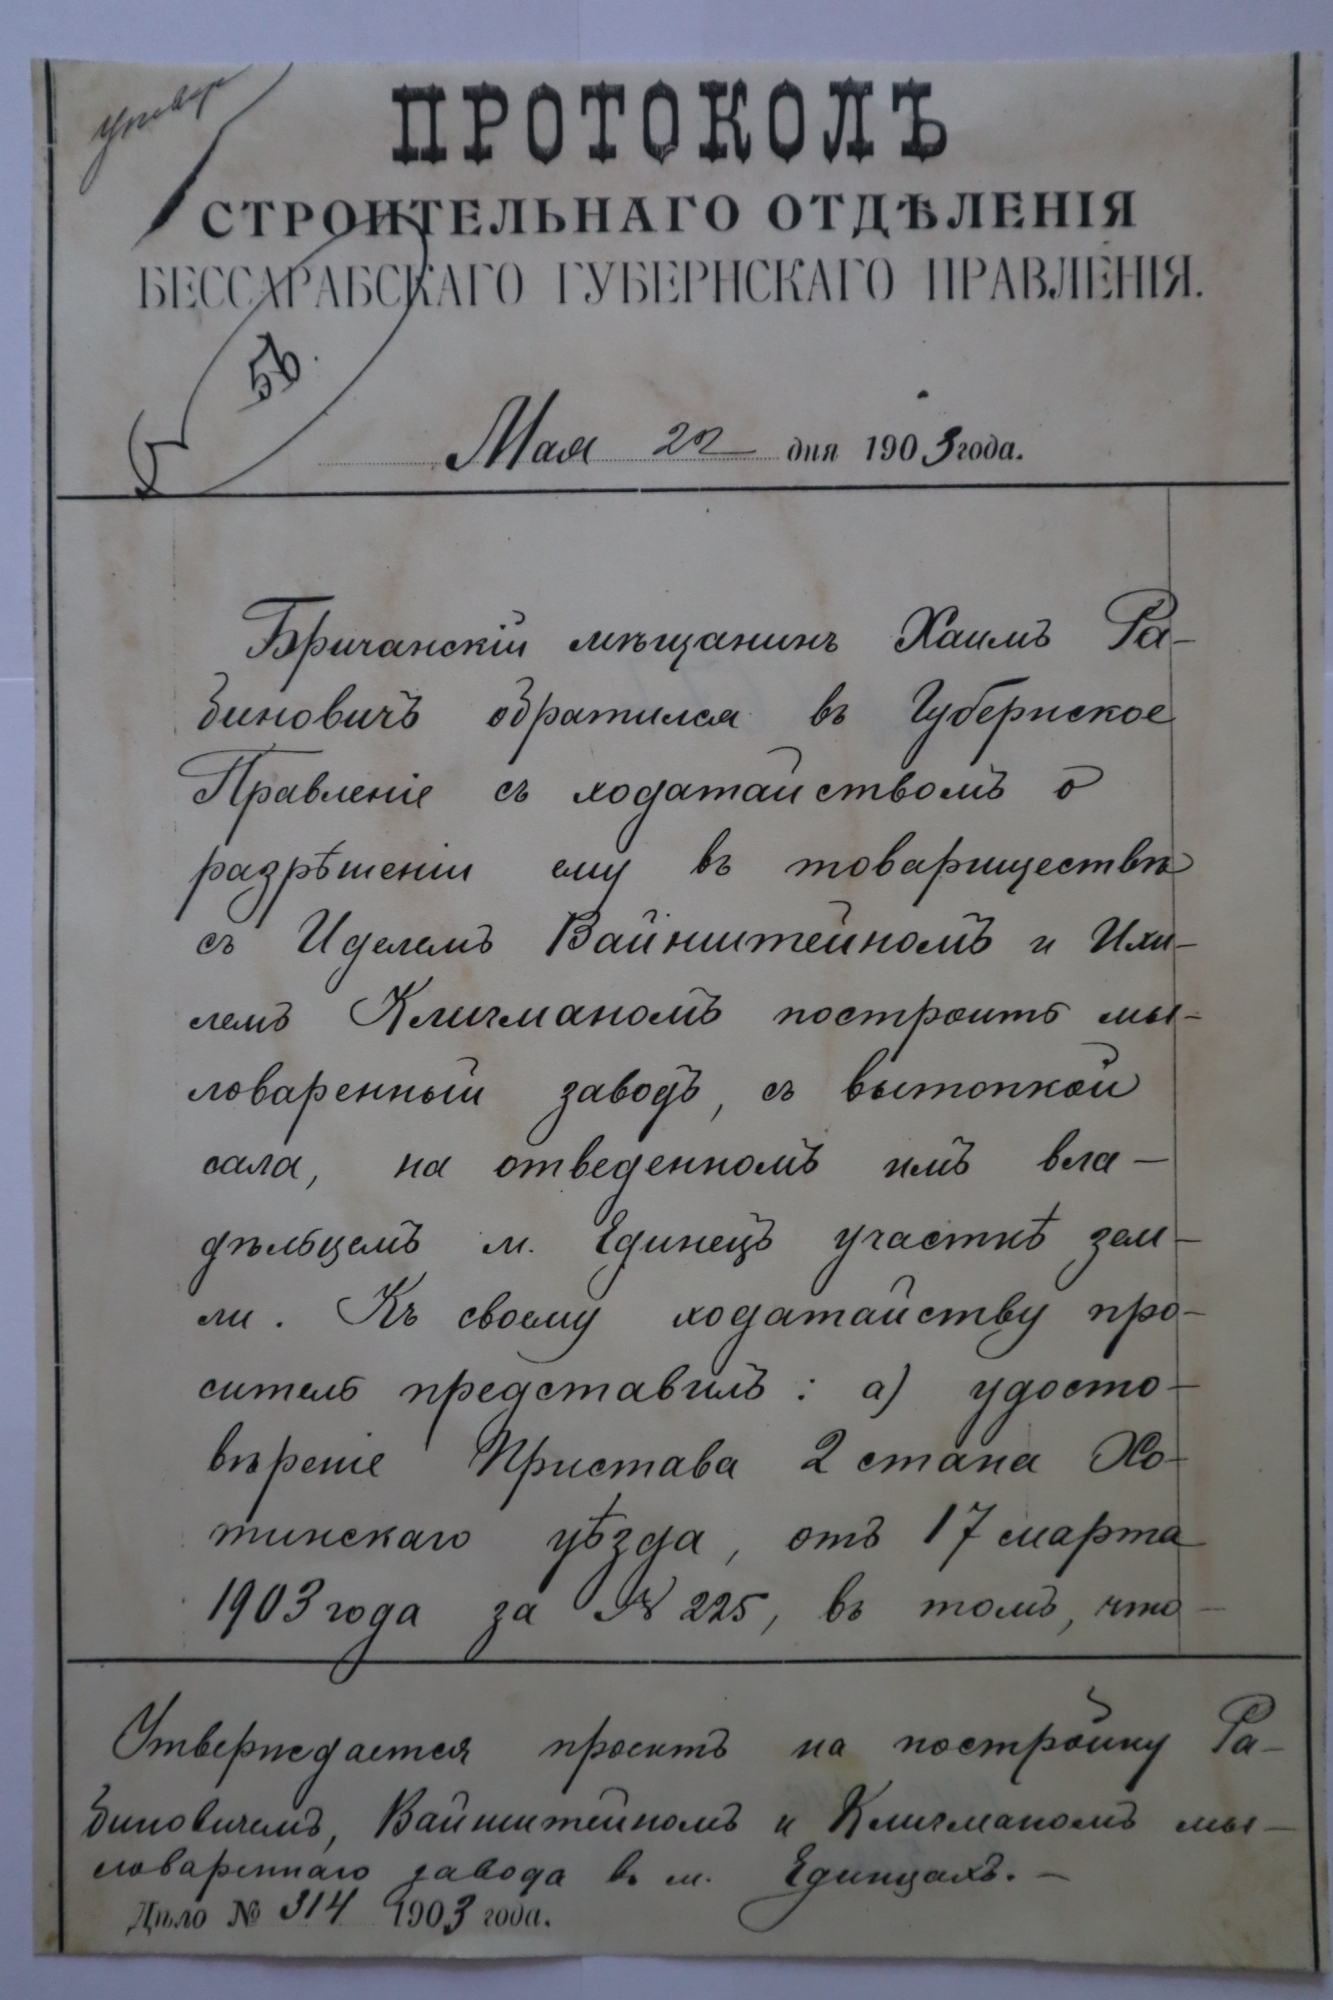 ПРОТОКОЛЪ
СТРОИТЕЛЬНАГО ОТДѢЛЕНІЯ
БЕССАРАБСКАГО ГУБЕРНСКАГО ПРАВЛЕНІЯ.
56.
Мая 22 дня 1903 года.
Бричанскій мѣщанинъ Хаимъ Ра-
биновичъ обратился въ Губернское
Правленіе съ ходатайствомъ о
разрѣшеніи ему въ товариществѣ
съ Иделемъ Вайнштейномъ и Ихи-
лемъ Кличманомъ построить мы-
ловаренный заводъ, съ вытопкой
сала, на отведенномъ имъ вла-
дѣльцемъ м. Единецъ участкѣ зем-
ли. Къ своему ходатайству про-
ситель представилъ: а) удосто-
вѣреніе Пристава 2 стана Хо-
тинскаго уѣзда, отъ 17 марта
1903 года за № 225, въ томъ, что
Утверждается проектъ на постройку Ра-
биновичемъ, Вайнштейномъ и Кличманомъ мы-
ловареннаго завода въ м. Единцахъ. —
Дѣло № 314 1903 года.